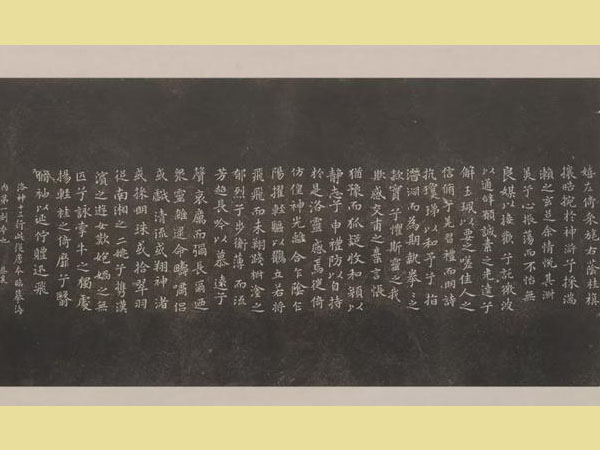 嬉左倚采旄右陰桂旗
攘皓捥於神滸兮採湍
瀨之玄芝余情悅其淑
美兮心振蕩而不怡無
良媒以接歡兮託微波
以通辭願誠素之先達兮
解玉珮以要之嗟佳人之
信脩羌習禮而明詩
抗瓊珶以和予兮指
潛淵而為期執拳拳之
款實兮懼斯靈之我
欺感交甫之棄言悵
猶豫而狐疑收和顏以
靜志兮申禮防以自持
於是洛靈感焉徙倚
仿偟神光離合乍陰乍
陽擢輕軀以鶴立若將
飛飛而未翔踐椒塗之
郁烈兮步衡薄而流
芳超長吟以慕遠兮
聲哀厲而彌長爾迺
眾靈雜遝命疇嘯侶
或戲清流或翔神渚
或採明珠或拾翠羽
從南湘之二姚兮攜漢
濱之遊女歎匏媧之無
匹兮詠牽牛之獨處
揚輕袿之倚靡兮翳
脩袖以延佇體迅飛
洛神十三行
內第一刻本也